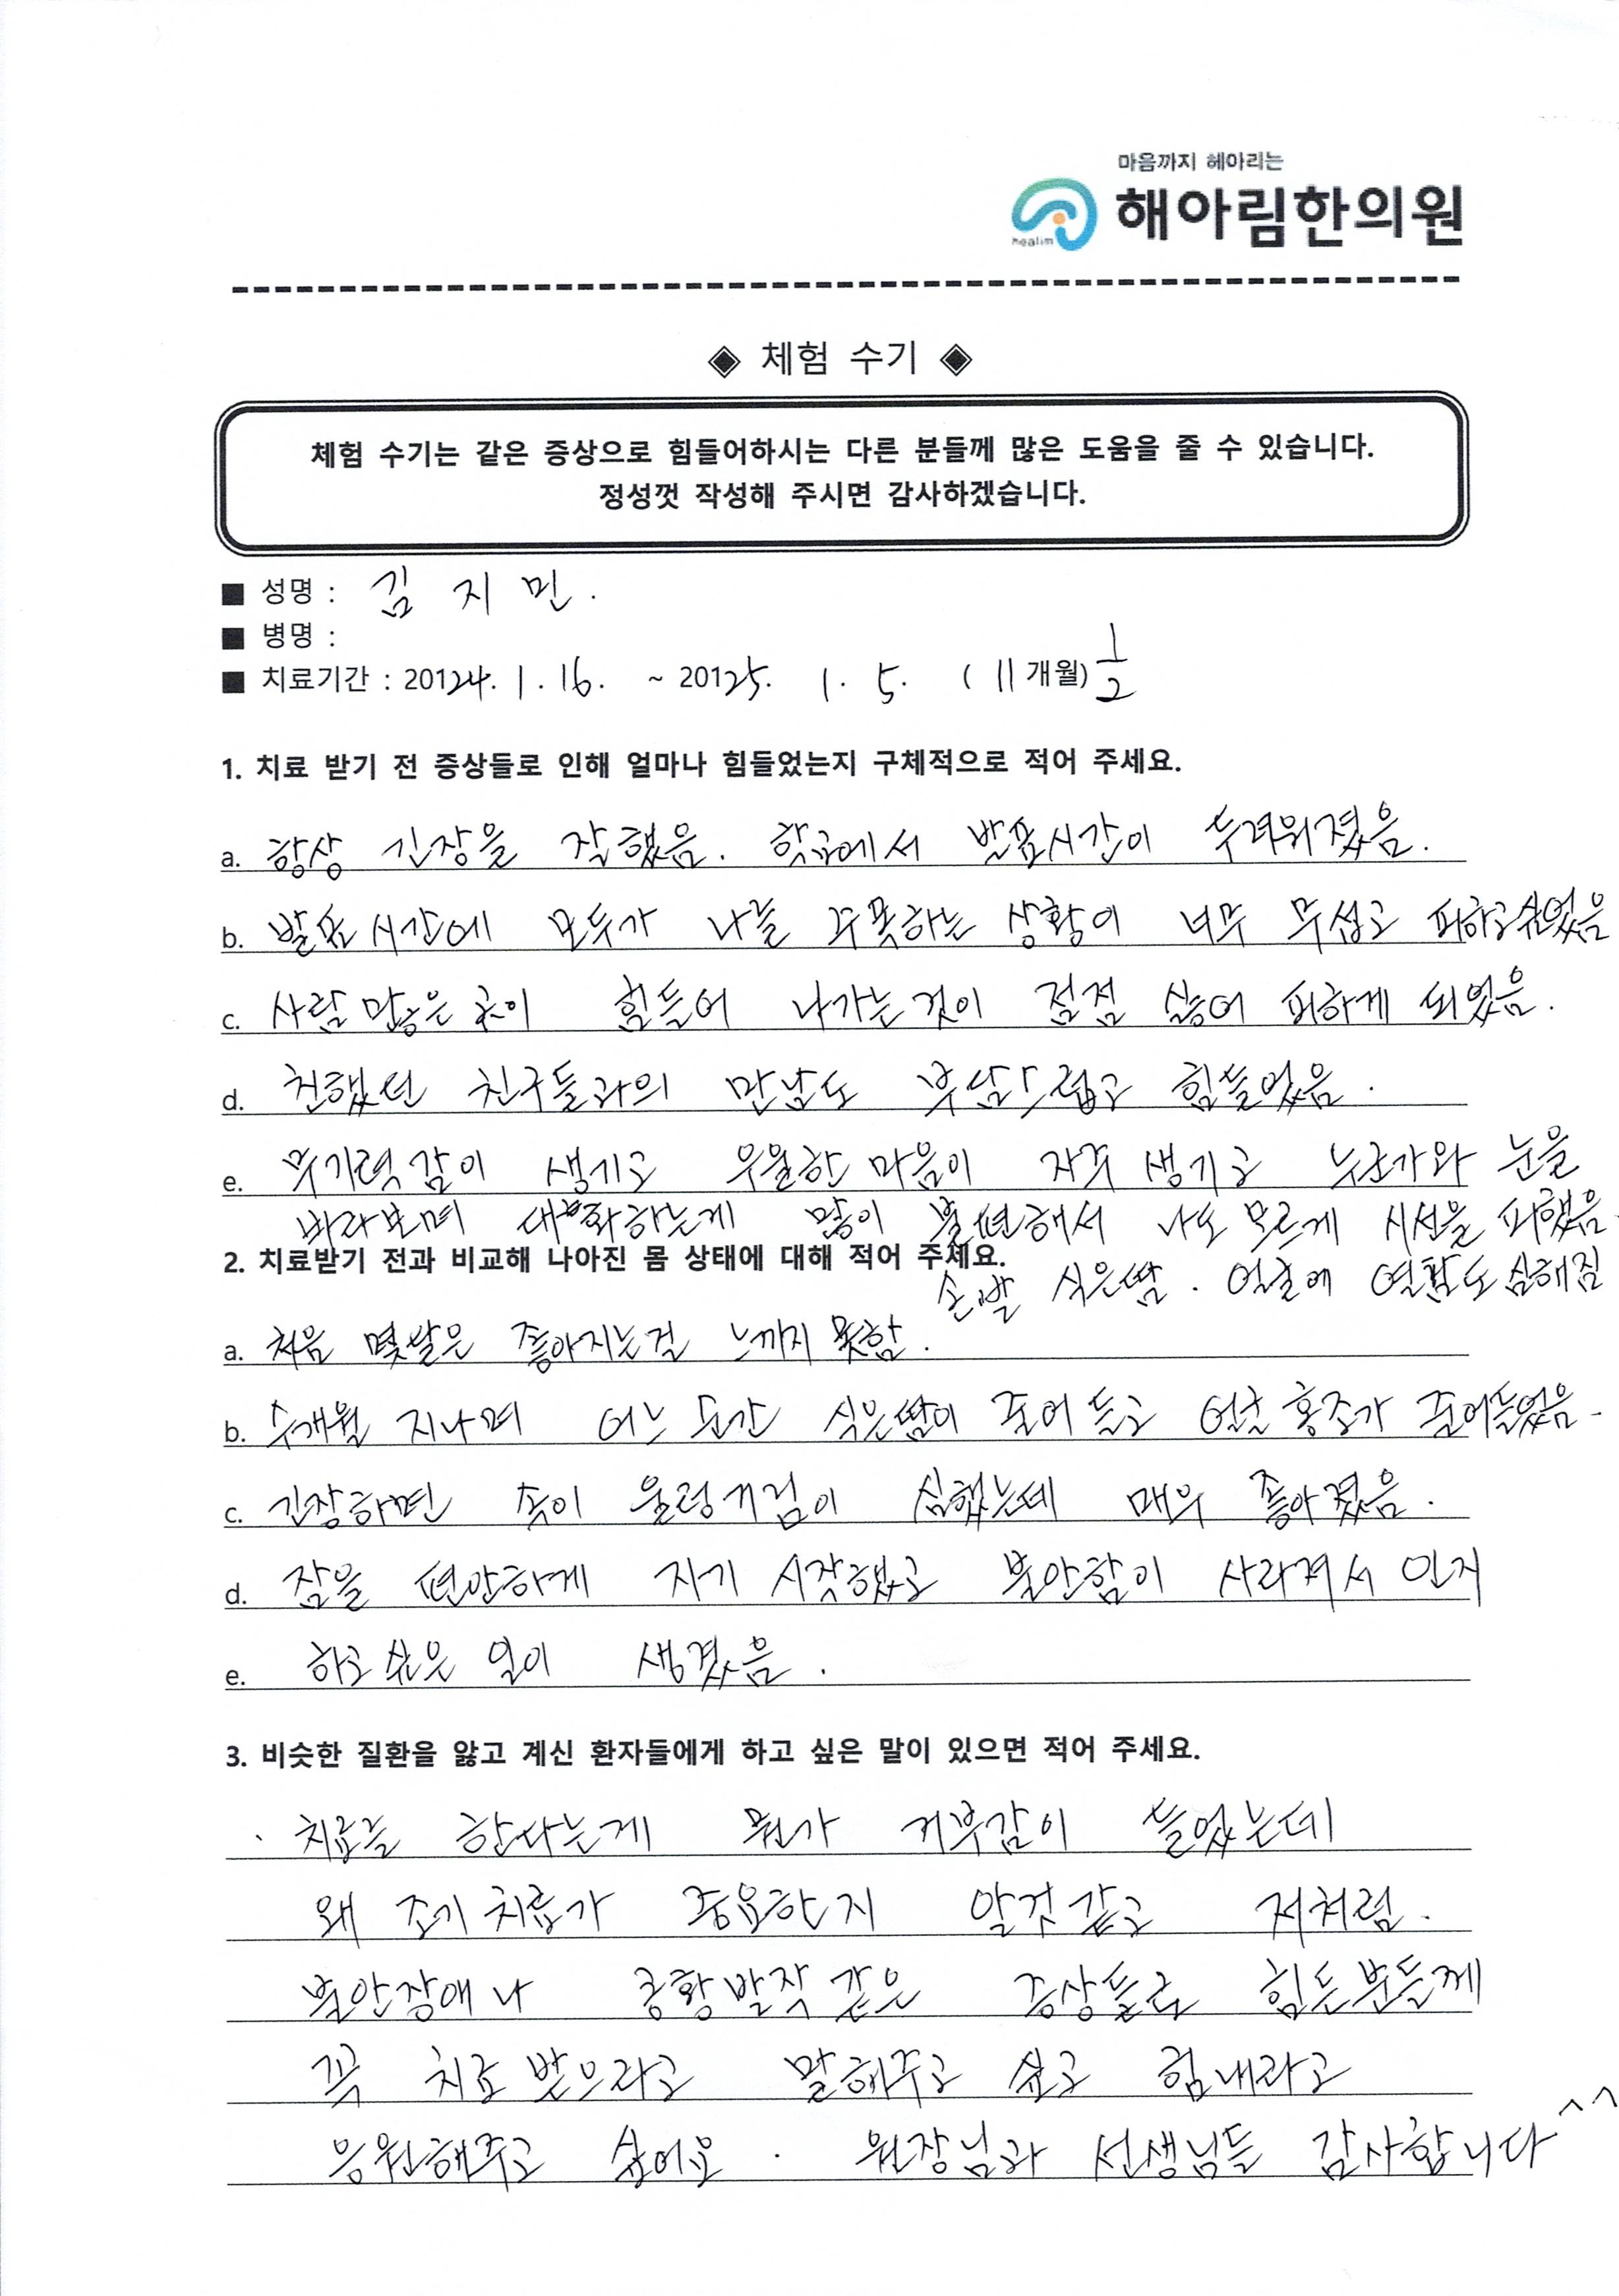 마음까지 헤아리는
해아림한의원
healim
◈ 체험 수기 ◈
체험 수기는 같은 증상으로 힘들어하시는 다른 분들께 많은 도움을 줄 수 있습니다.
정성껏 작성해 주시면 감사하겠습니다.
■ 성명 : 김 지 민.
■ 병명 :
■ 치료기간 : 20124. 1. 16. ~ 20125. 1. 5. ( 11 개월) 1/2
1. 치료 받기 전 증상들로 인해 얼마나 힘들었는지 구체적으로 적어 주세요.
a. 항상 긴장을 잘했음. 학교에서 발표시간이 두려워졌음.
b. 발표 시간에 모두가 나를 주목하는 상황이 너무 무섭고 피하고싶었음
c. 사람 많은 곳이 힘들어 나가는것이 점점 싫어 피하게 되었음.
d. 친했던 친구들과의 만남도 부담스럽고 힘들었음.
e. 무기력감이 생기고 우울한 마음이 자주 생기고 누군가와 눈을
바라보며 대화하는게 많이 불편해서 나도 모르게 시선을 피했음.
2. 치료받기 전과 비교해 나아진 몸 상태에 대해 적어 주세요.
손,발 식은땀. 얼굴에 열감도 심해짐
a. 처음 몇달은 좋아지는걸 느끼지 못함.
b. 수개월 지나며 어느 순간 식은땀이 줄어 들고 얼굴 홍조가 줄어들었음.
c. 긴장하면 속이 울렁거림이 심했는데 매우 좋아졌음.
d. 잠을 편안하게 자기 시작했고 불안함이 사라져서 인지
e. 하고 싶은 일이 생겼음.
3. 비슷한 질환을 앓고 계신 환자들에게 하고 싶은 말이 있으면 적어 주세요.
· 치료를 한다는게 뭔가 거부감이 들었는데
왜 조기 치료가 중요한지 알것같고 저처럼.
불안장애나 공황발작 같은 증상들로 힘든분들께
꼭 치료 받으라고 말해주고 싶고 힘내라고
응원해주고 싶어요. 원장님과 선생님들 감사합니다^^